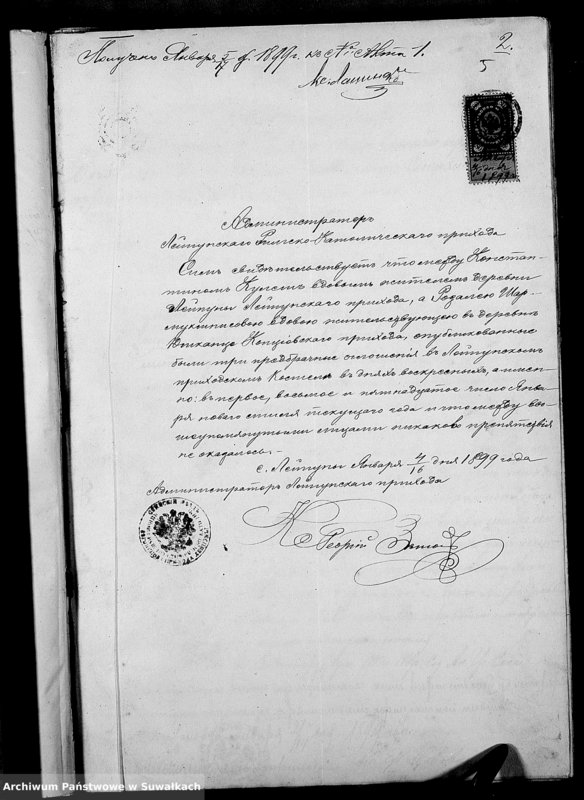 Получено Января 1899 г. къ № Акта 1.
2.
5
1899
Администраторъ
Лейпунскаго Римско-Католическаго прихода
Симъ свидѣтельствуетъ что между Констан-
тиномъ вдовымъ жителемъ деревни
Лейпуны Лейпунскаго прихода, а Розалею Шар-
вдовою жительствующею въ деревнѣ
Копціовскаго прихода, опубликованные
были три предбрачные оглошенія въ Лейпунскомъ
приходскомъ Костелѣ въ дняхъ воскресныхъ, а имен-
но: въ первое, восьмое и пятнадцатое число Янва-
ря новаго стиля текущаго года и что между вы-
шеупомянутыми лицами никакого препятствія
не оказалось.-
с. Лейпуны Января 4/16 дня 1899 года
Администраторъ Лейпунскаго прихода
Кс Георгій
Archiwum Państwowe w Suwałkach